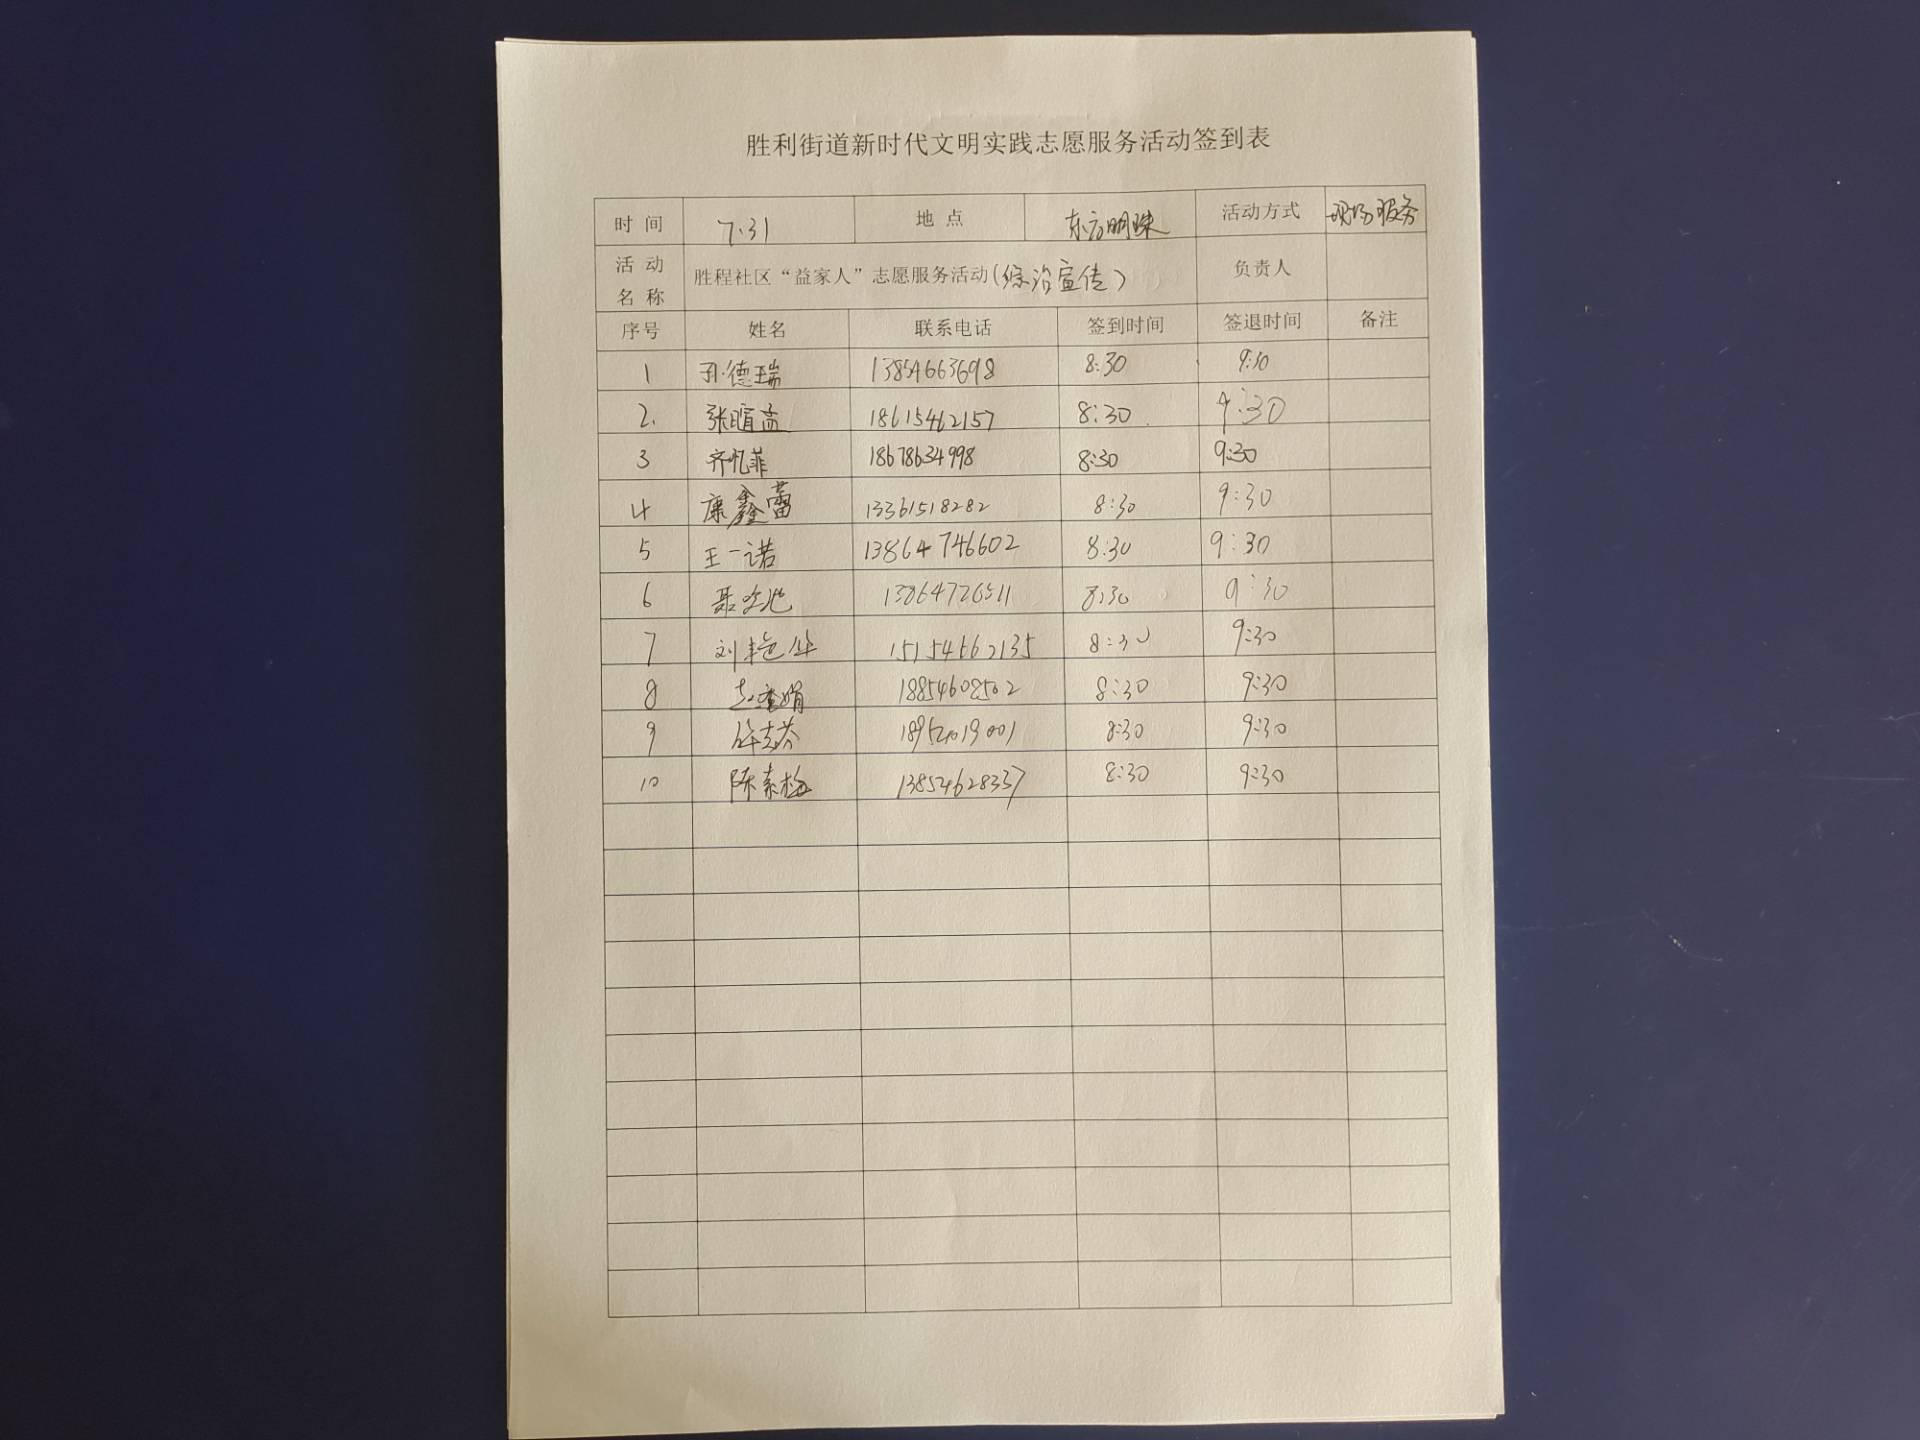 胜利街道新时代文明实践志愿服务活动签到表
时间 7.31 地点 东方明珠 活动方式 现场服务
活动名称 胜程社区“益家人”志愿服务活动(综治宣传) 负责人
序号 姓名 联系电话 签到时间 签退时间 备注
1 孔德瑞 13854663698 8:30 9:30
2. 张暄孟 18615462157 8:30 9:30
3 齐忆菲 18678634998 8:30 9:30
4 康鑫蕾 13361518282 8:30 9:30
5 王一诺 13864746602 8:30 9:30
6 13864726511 8:30 9:30
7 刘艳华 15154662135 8:30 9:30
8 18854608502 8:30 9:30
9 8:30 9:30
10 陈素梅 13854628337 8:30 9:30